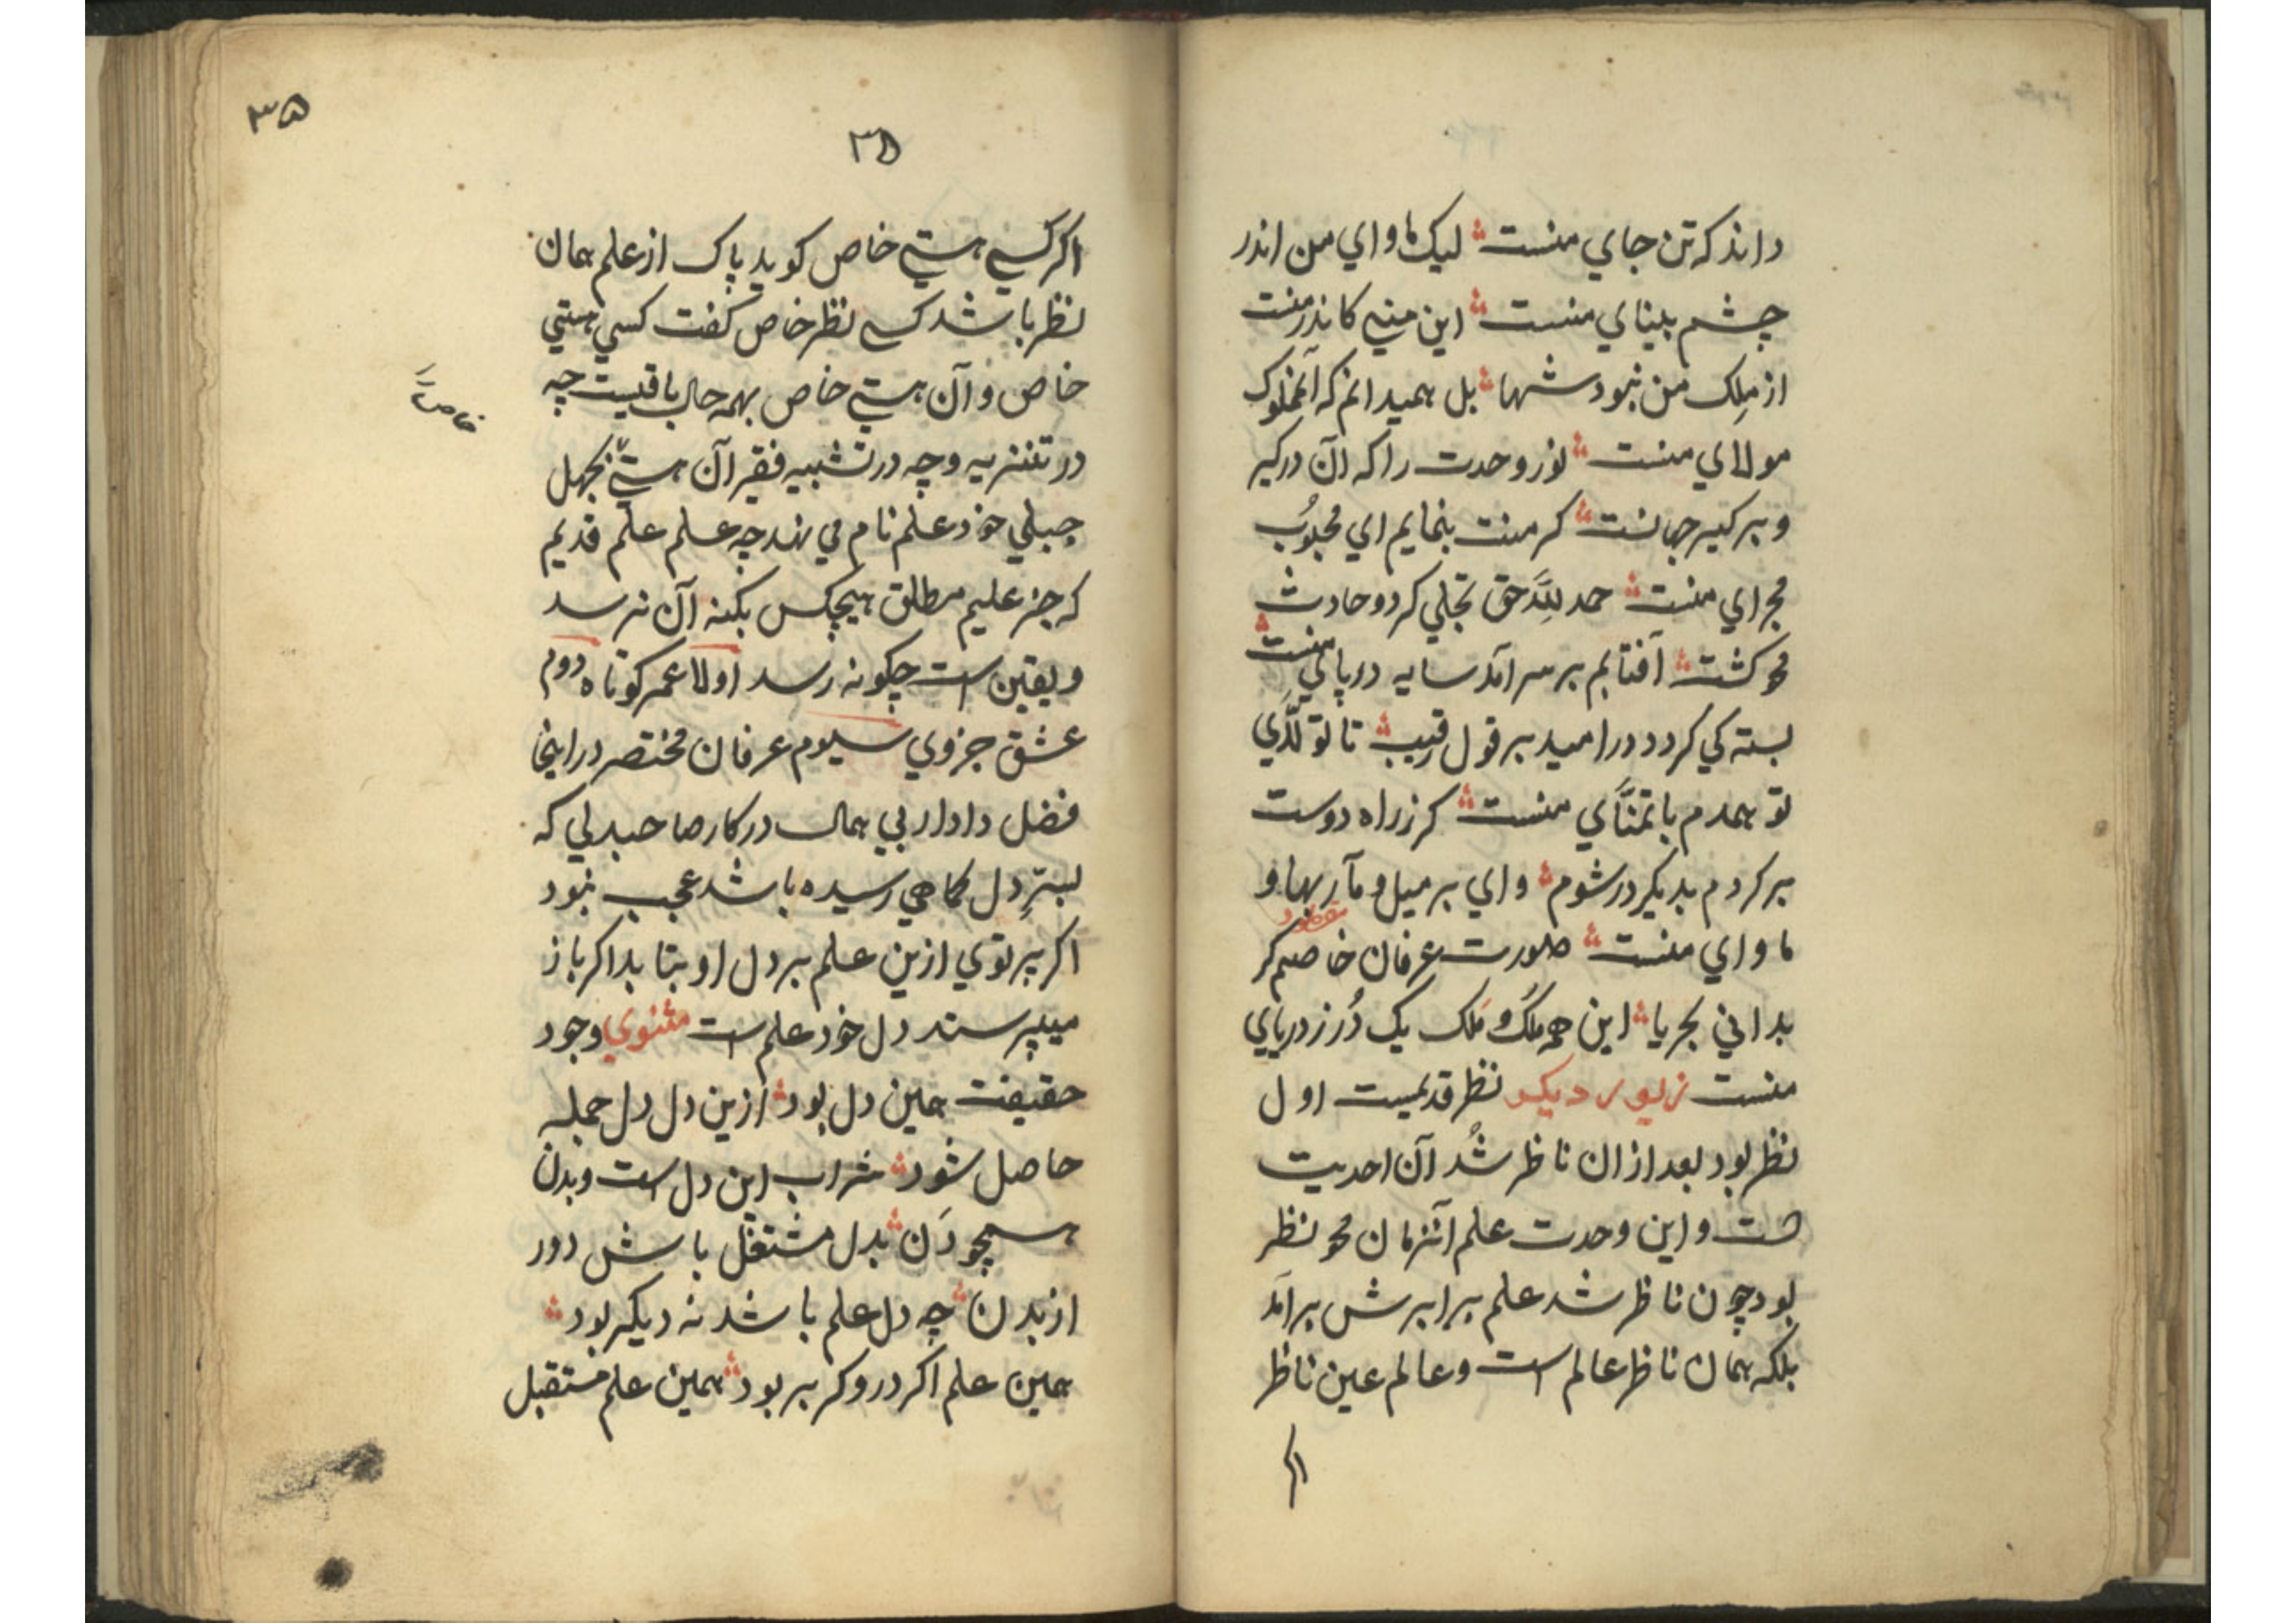 داند که تن جاي منست ليک ماواي من اندر
چشم بيناي منست اين مني کاندر منست
از ملک من نبود شها بل هميدانم که آنملوک
مولاي منست نور وحدت را که آن درگير
و برگير جهانست گر منت بنمايم اي محبوب
مجراي منست حمد لله حق تجلي کرد و حادث
محو گشت آفتابم بر سر آمد سايه در پاي منست
بسته کي گردد در اميد بر قول رقيب تا تولّاي
تو همدم با تمنّاي منست گر ز راه دوست
برگردم بديگر در شوم واي بر ميل و مآربها و
ماواي منست صورت عرفان خاصم گر
مقصود
بداني بحريا اين همه ملک و مَلک يک دُر ز درياي
منست زيور ديگر نظر قديمست اول
نظر بود بعد از ان ناظر شُد آن احديت
است و اين وحدت علم آنزمان محو نظر
بود چون ناظر شد علم برابرش برآمد
بلکه همان ناظر عالم است و عالم عين ناظر
اگر
۳۵
۳۵
اگر کسي هستي خاص گويد پاک از علم همان
نظر باشد کسي نظر خاص گفت کسي هستي
خاص و آن هستي خاص بهمه حال باقيست چه
در تنزيه و چه در تشبيه فقير آن هستي بجهل
جبلي خود علم نام مي نهد چه علم علم قديم
که جز عليم مطلق هيچکس بکنه آن نرسد
و يقين است چگونه رسد اولا عمر کوتاه دوم
عشق جزوي سيوم عرفان مختصر در اينجا
فضل دادار بي همال در کار صاحبدلي که
بسرِّ دل کماهي رسيده باشد عجب نبود
اگر پرتوي ازين علم بر دل او بتابد اگر باز
ميپرسند دل خود علم است مثنوي وجود
حقيقت همين دل بود ازين دل دل جمله
حاصل شود شراب اين دل است و بدن
همچو دَن بدل مشتغل باش دور
از بدن چه دل علم باشد نه ديگر بود
همين علم اگر در و گر بر بود همين علم مستقبل